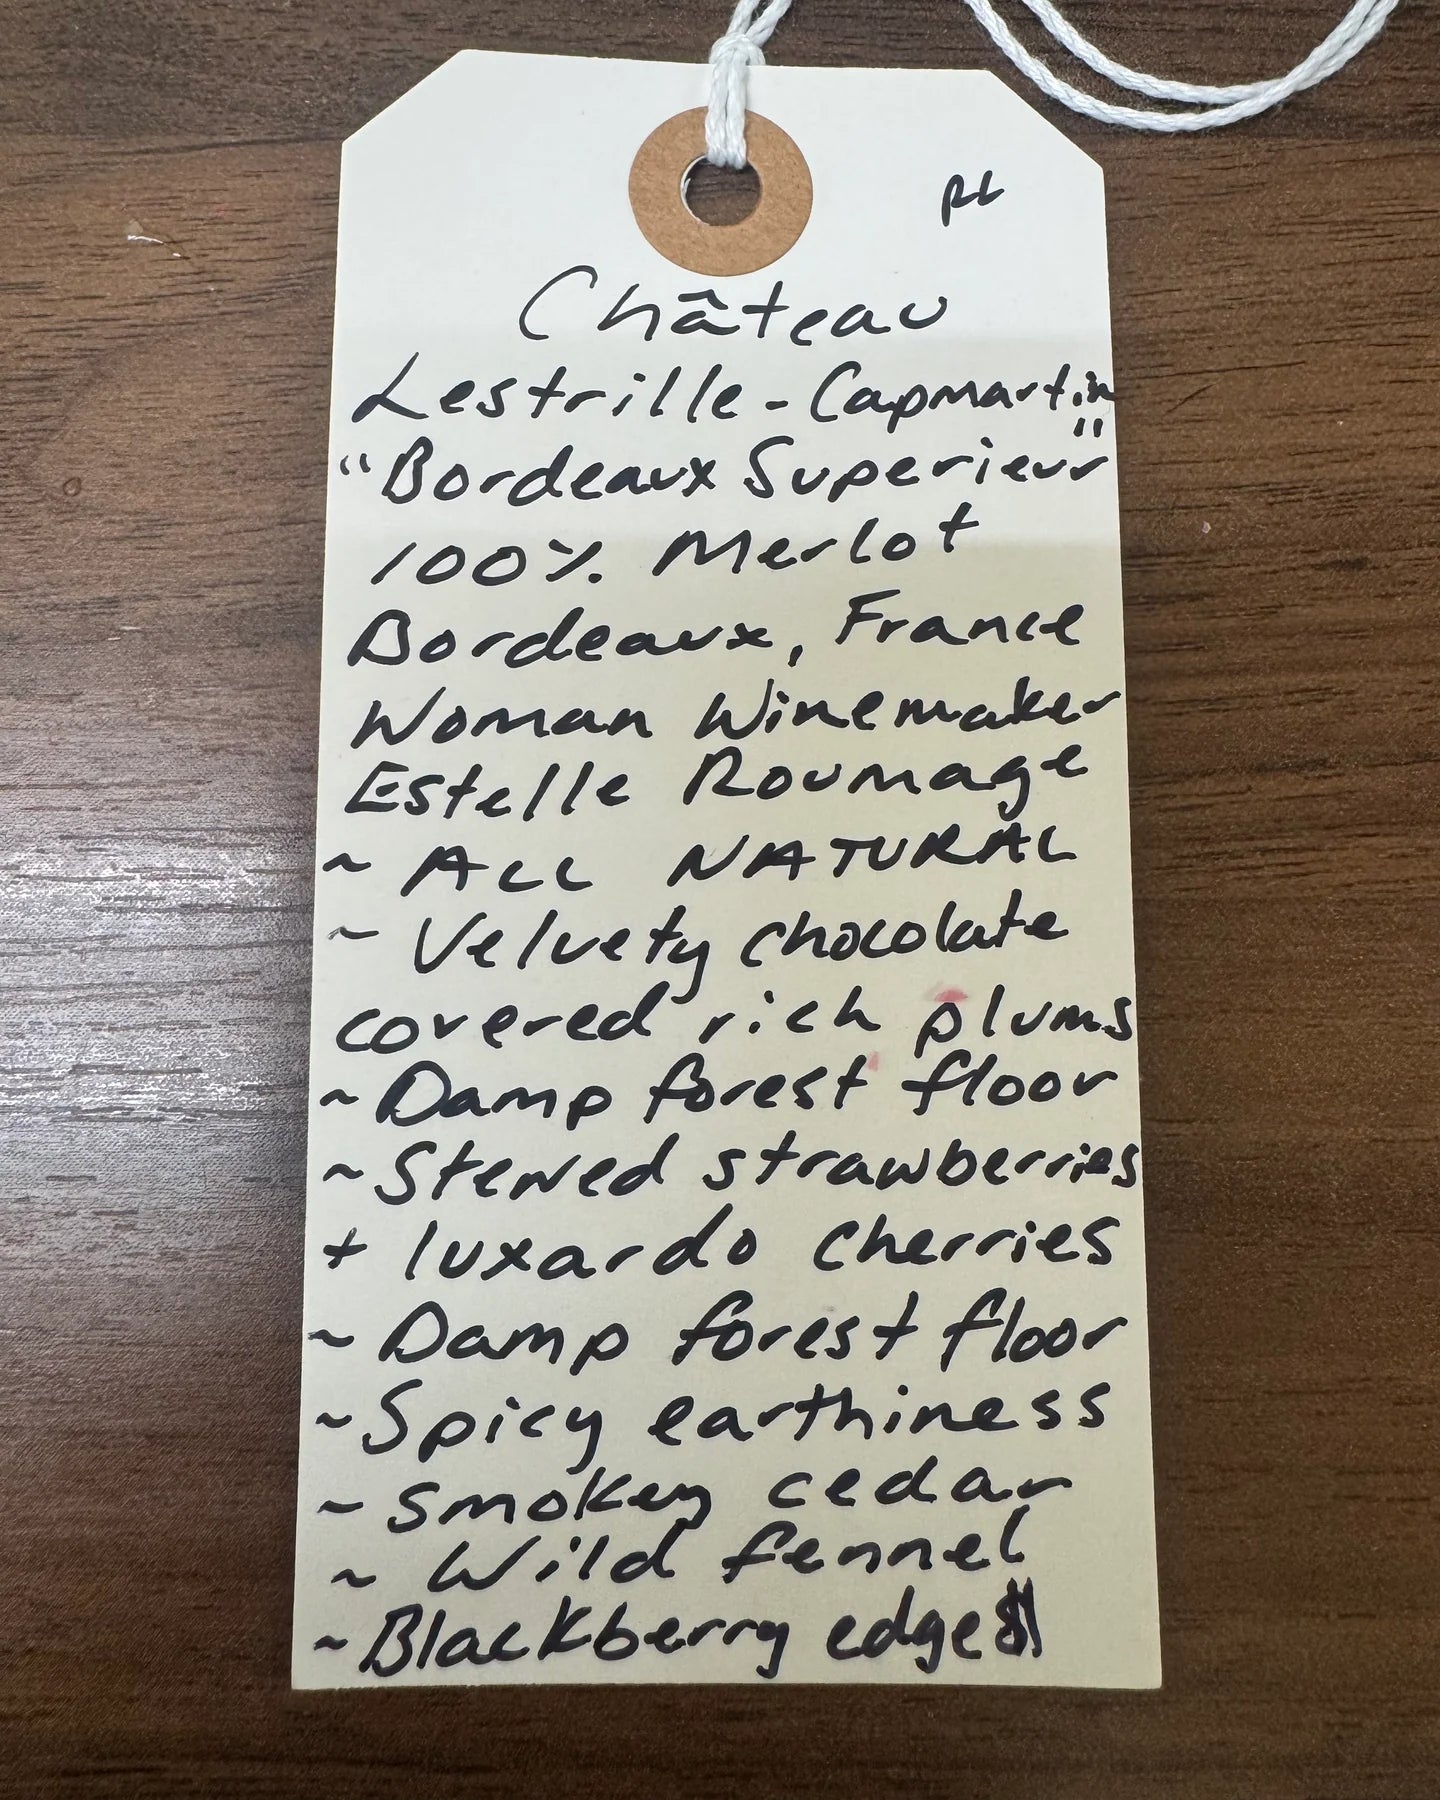 Château
Lestrille-Capmartin
"Bordeaux Superieur"
100% Merlot
Bordeaux, France
Woman Winemaker
Estelle Roumage
~ ALL NATURAL
~ Velvety chocolate
covered rich plums
~ Damp forest floor
~ Stewed strawberries
+ luxardo cherries
~ Damp forest floor
~ Spicy earthiness
~ Smokey cedar
~ Wild fennel
~ Blackberry edge